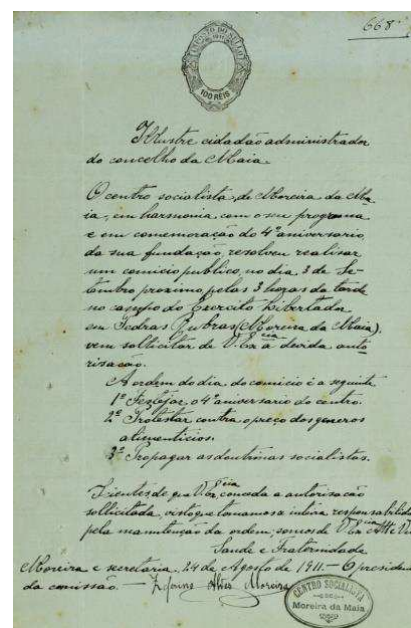 668
IMPOSTO DO SELLO
1911
100 RÉIS
Illustre cidadão administrador
do concelho da Maia.
O centro socialista, de Moreira da Ma-
ia, em harmonia, com o seu programa
e em comemoração do 4º aniversario
da sua fundação, resolveu realisar
um comicio publico, no dia 3 de Se-
tembro proximo, pelas 3 horas da tarde
no campo do Exercito Libertador
em Pedras Rubras (Moreira da Maia),
vem sollicitar de V. Exª a devida auto-
risacão.
A ordem do dia, do comicio é a seguinte
1º Festejar, o 4º aniversario do centro.
2º Protestar contra o preço dos generos
alimenticios.
3º Propagar as doutrinas socialistas.
que V. Exª conceda a autorisacão
sollicitada, visto que tomamos a inteira responsabilidade
pela manutenção da ordem, somos de V. Exª
Saude e Fraternidade
Moreira e secretaria, 24 de Agosto de 1911. — O presidente
da comissão. — Alves Moreira
CENTRO SOCIALISTA
Moreira da Maia